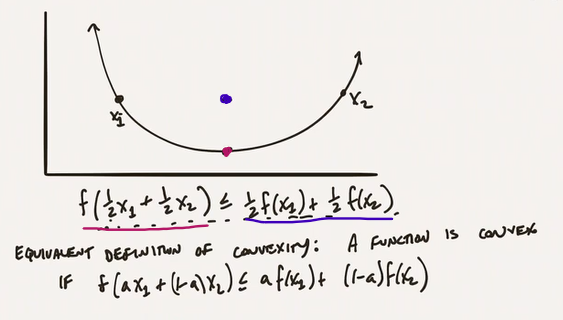 x₁
x₂
f(½x₁ + ½x₂) ≤ ½f(x₁) + ½f(x₂)
EQUIVALENT DEFINITION OF CONVEXITY: A FUNCTION IS CONVEX
IF f(ax₁ + (1-a)x₂) ≤ af(x₁) + (1-a)f(x₂)